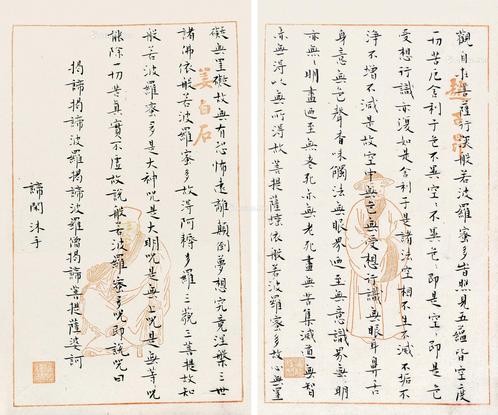 觀自在菩薩行深般若波羅蜜多時照見五蘊皆空度
一切苦厄舍利子色不異空〻不異色〻即是空〻即是色
受想行識亦復如是舍利子是諸法空相不生不滅不垢不
淨不增不減是故空中無色無受想行識無眼耳鼻舌
身意無色聲香味觸法無眼界迺至無意識界無明
亦無〻明盡迺至無老死亦無老死盡無苦集滅道無智
亦無得以無所得故菩提薩埵依般若波羅蜜多故心無罣
礙無罣礙故無有恐怖遠離顛倒夢想究竟涅槃三世
諸佛依般若波羅蜜多故得阿耨多羅三藐三菩提故知
般若波羅蜜多是大神咒是大明咒是無上咒是無等咒
能除一切苦真實不虛故說般若波羅蜜多咒即說咒曰
揭諦揭諦波羅揭諦波羅僧揭諦菩提薩婆訶
諦閑沐手
姜白石